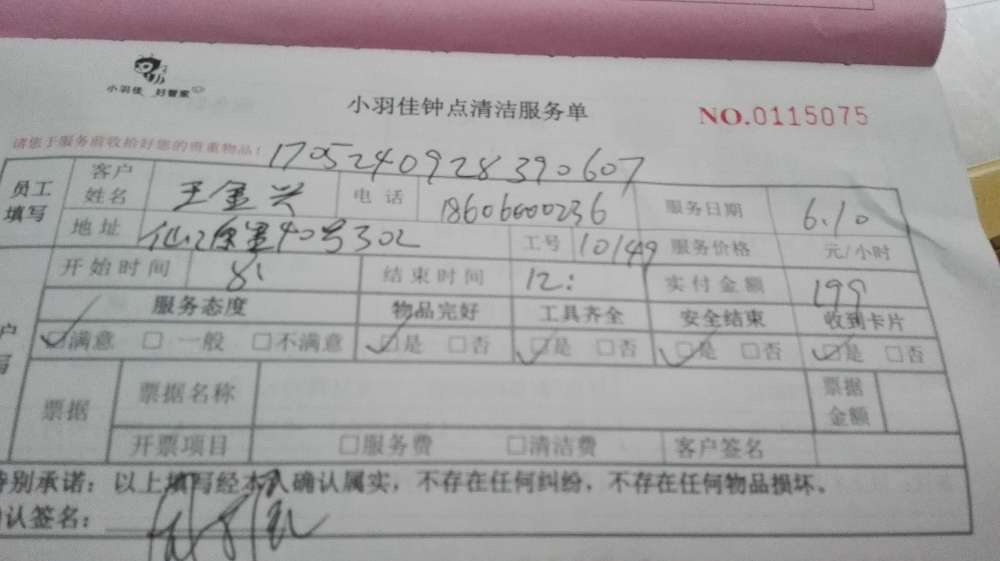 小羽佳 好管家
小羽佳钟点清洁服务单 NO.0115075
请您于服务前收拾好您的贵重物品！ 1705240928390607
员工填写 客户姓名 王金兴 电话 18606000236 服务日期 6.10
地址 40号302 工号 10149 服务价格 元/小时
开始时间 8: 结束时间 12: 实付金额 199
服务态度 物品完好 工具齐全 安全结束 收到卡片
☑满意 □一般 □不满意 ☑是 □否 ☑是 □否 ☑是 □否 ☑是 □否
票据 票据名称 票据金额
开票项目 □服务费 □清洁费 客户签名
特别承诺：以上填写经本人确认属实，不存在任何纠纷，不存在任何物品损坏。
确认签名：